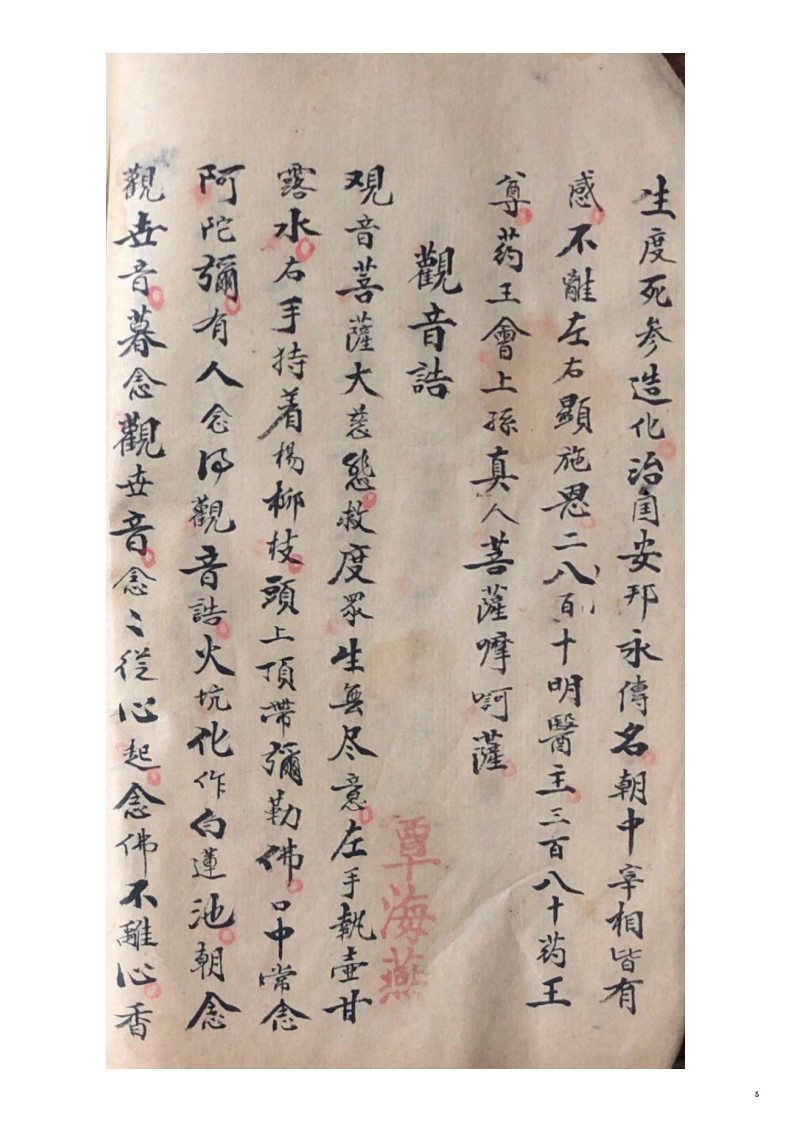 生度死参造化治国安邦永傳名朝中宰相皆有
感不離左右顯施恩二八百十明醫主三百八十药王
尊药王會上孫真人菩薩嚤呵薩
觀音誥
观音菩薩大慈悲救度眾生無尽意左手執壺甘
露水右手持着楊柳枝頭上頂帶彌勒佛口中常念
阿陀彌有人念得觀音誥火坑化作白蓮池朝念
觀世音暮念觀世音念〻從心起念佛不離心香
覃海燕
5